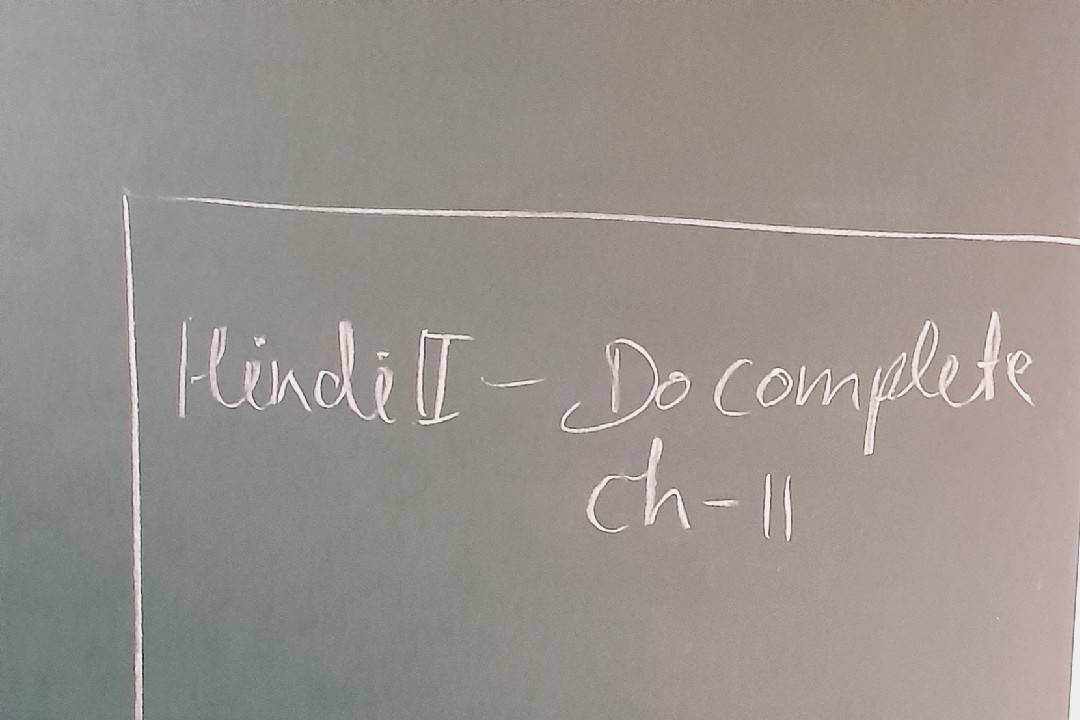 Hindi II - Do complete
Ch - 11